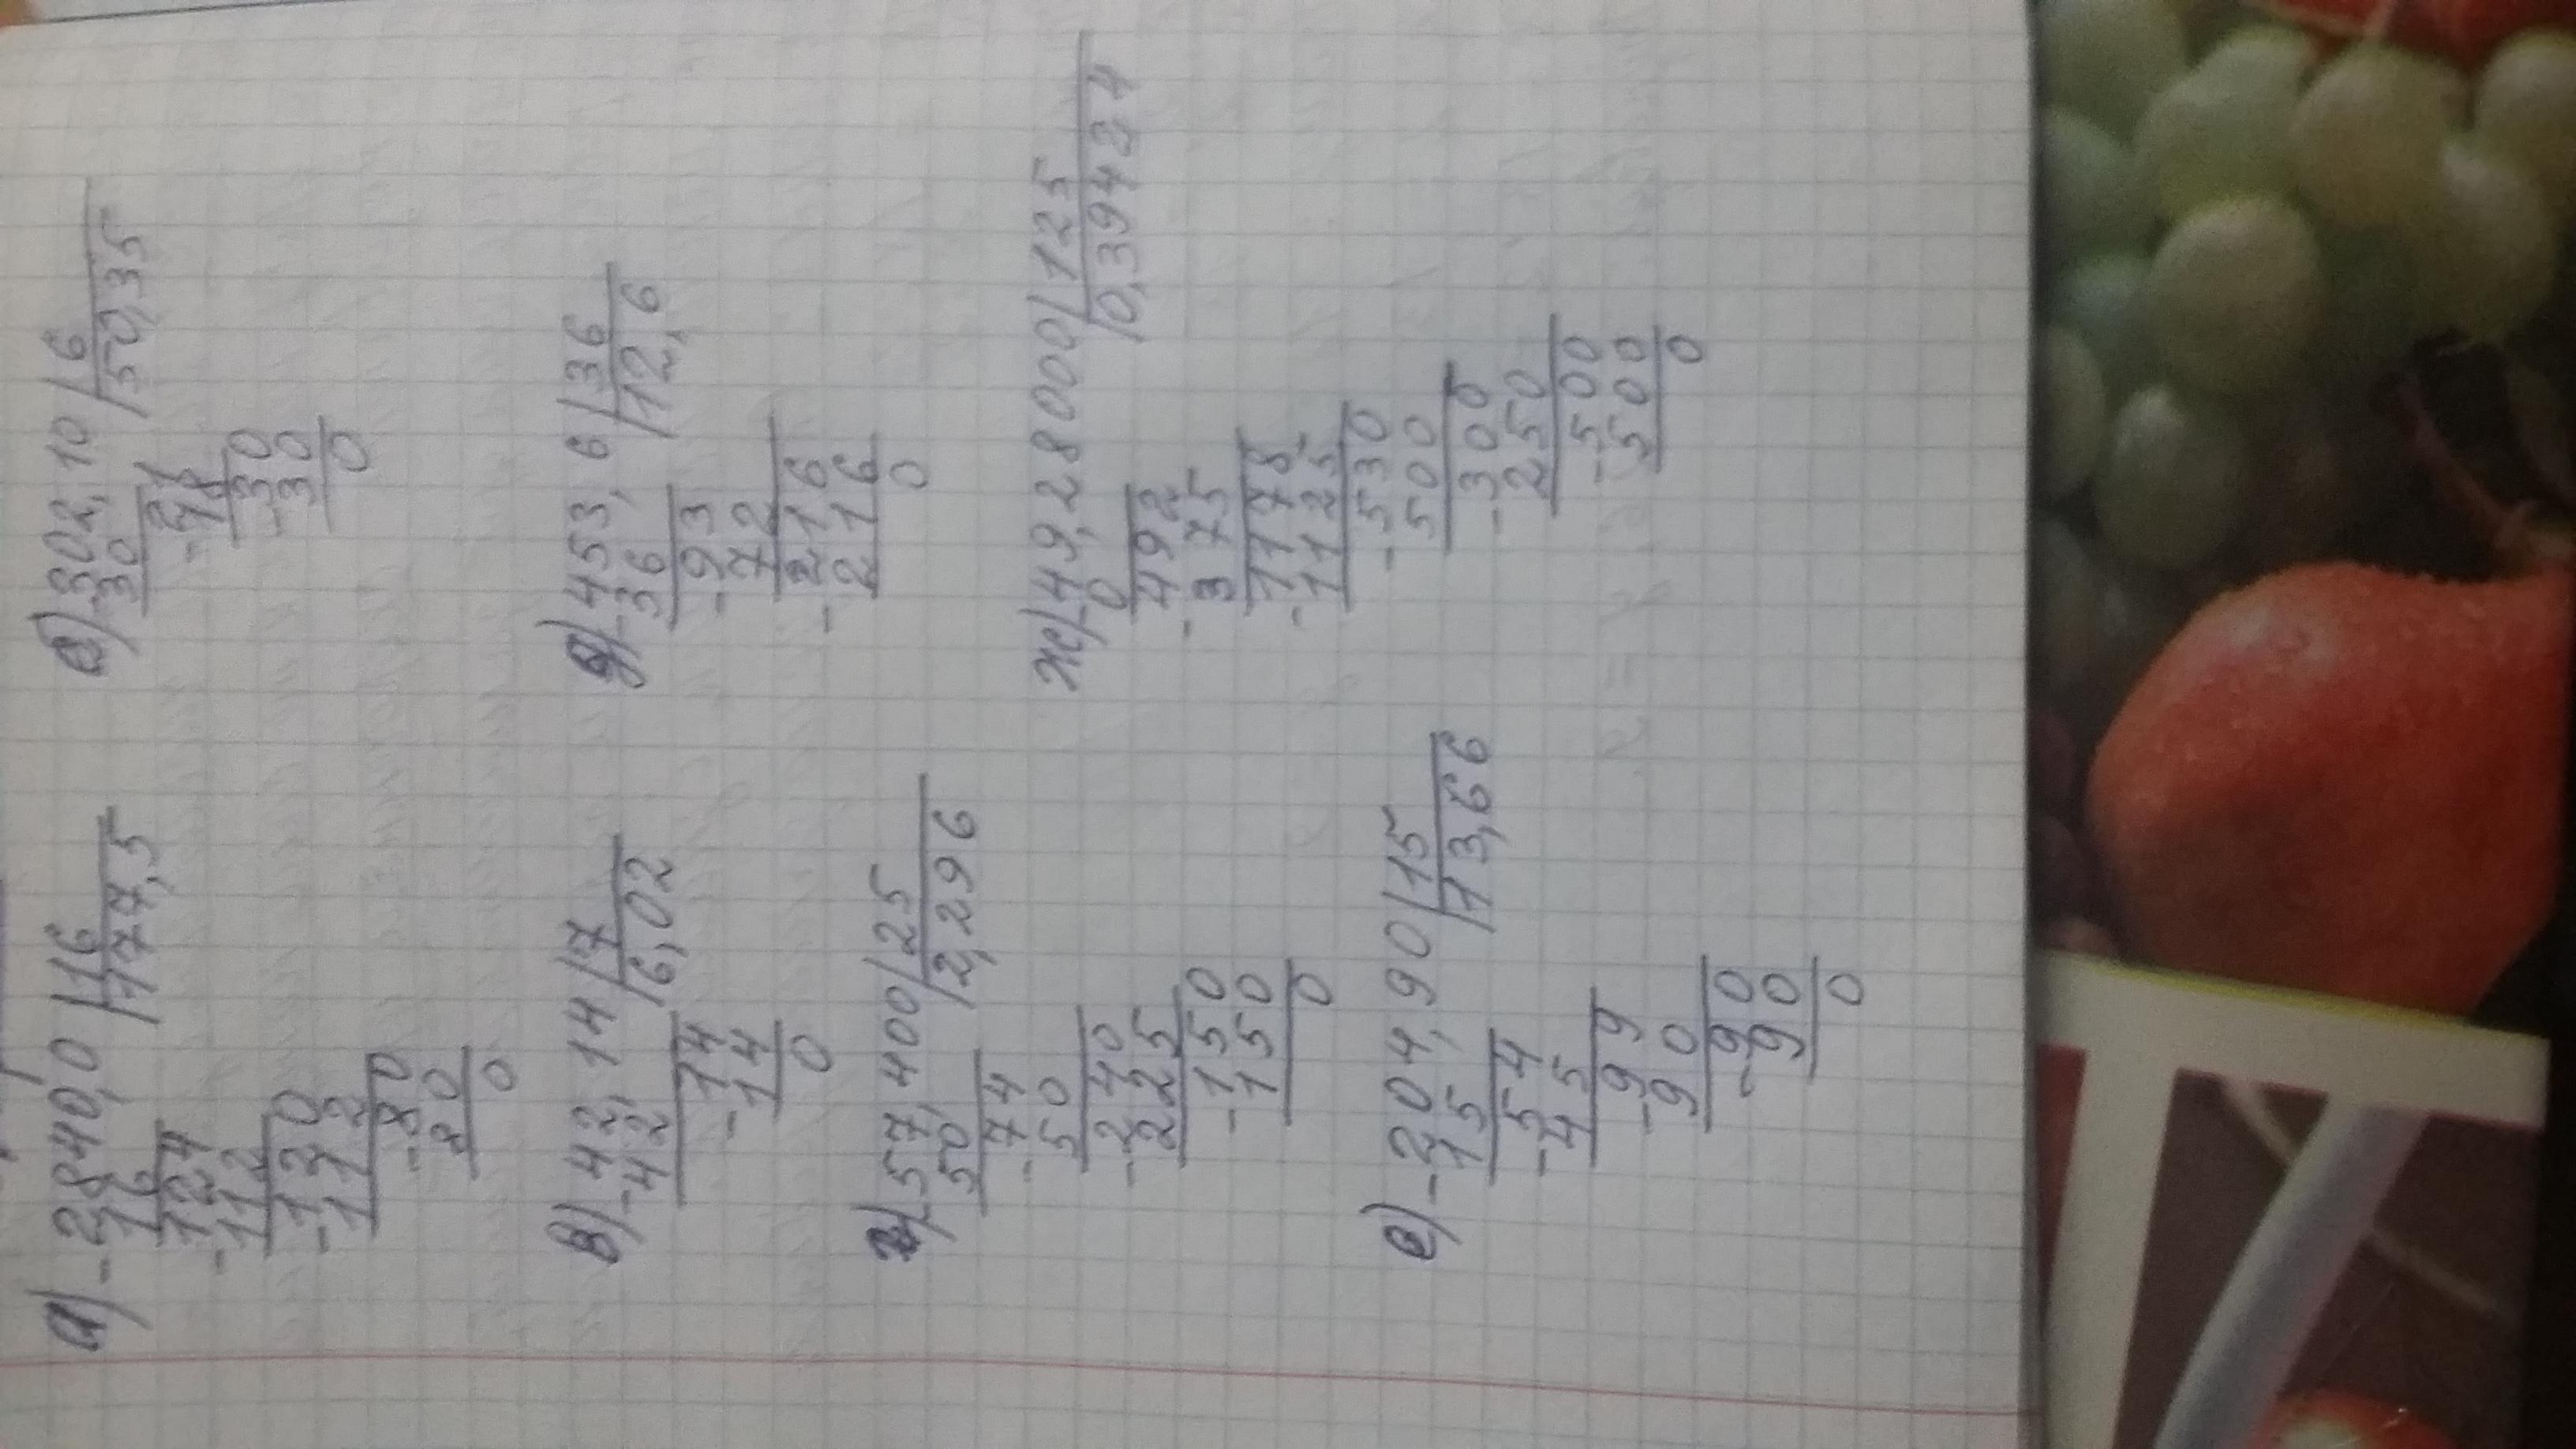 а) -2840,0 | 16
16 177,5
124
-112
-120
112
-80
80
0
б) -302,10 | 6
30 50,35
21
-18
-30
30
0
в) -42,14 | 7
-42 6,02
-14
14
0
д) -453,6 | 36
36 12,6
-93
72
-216
216
0
г) -57,400 | 25
50 2,296
-74
50
-240
225
-150
150
0
ж) -49,28000 | 125
0 0,39424
-492
375
-1178
1125
-530
500
-300
250
-500
500
0
е) -204,90 | 15
15 13,66
-54
45
-99
90
-90
90
0